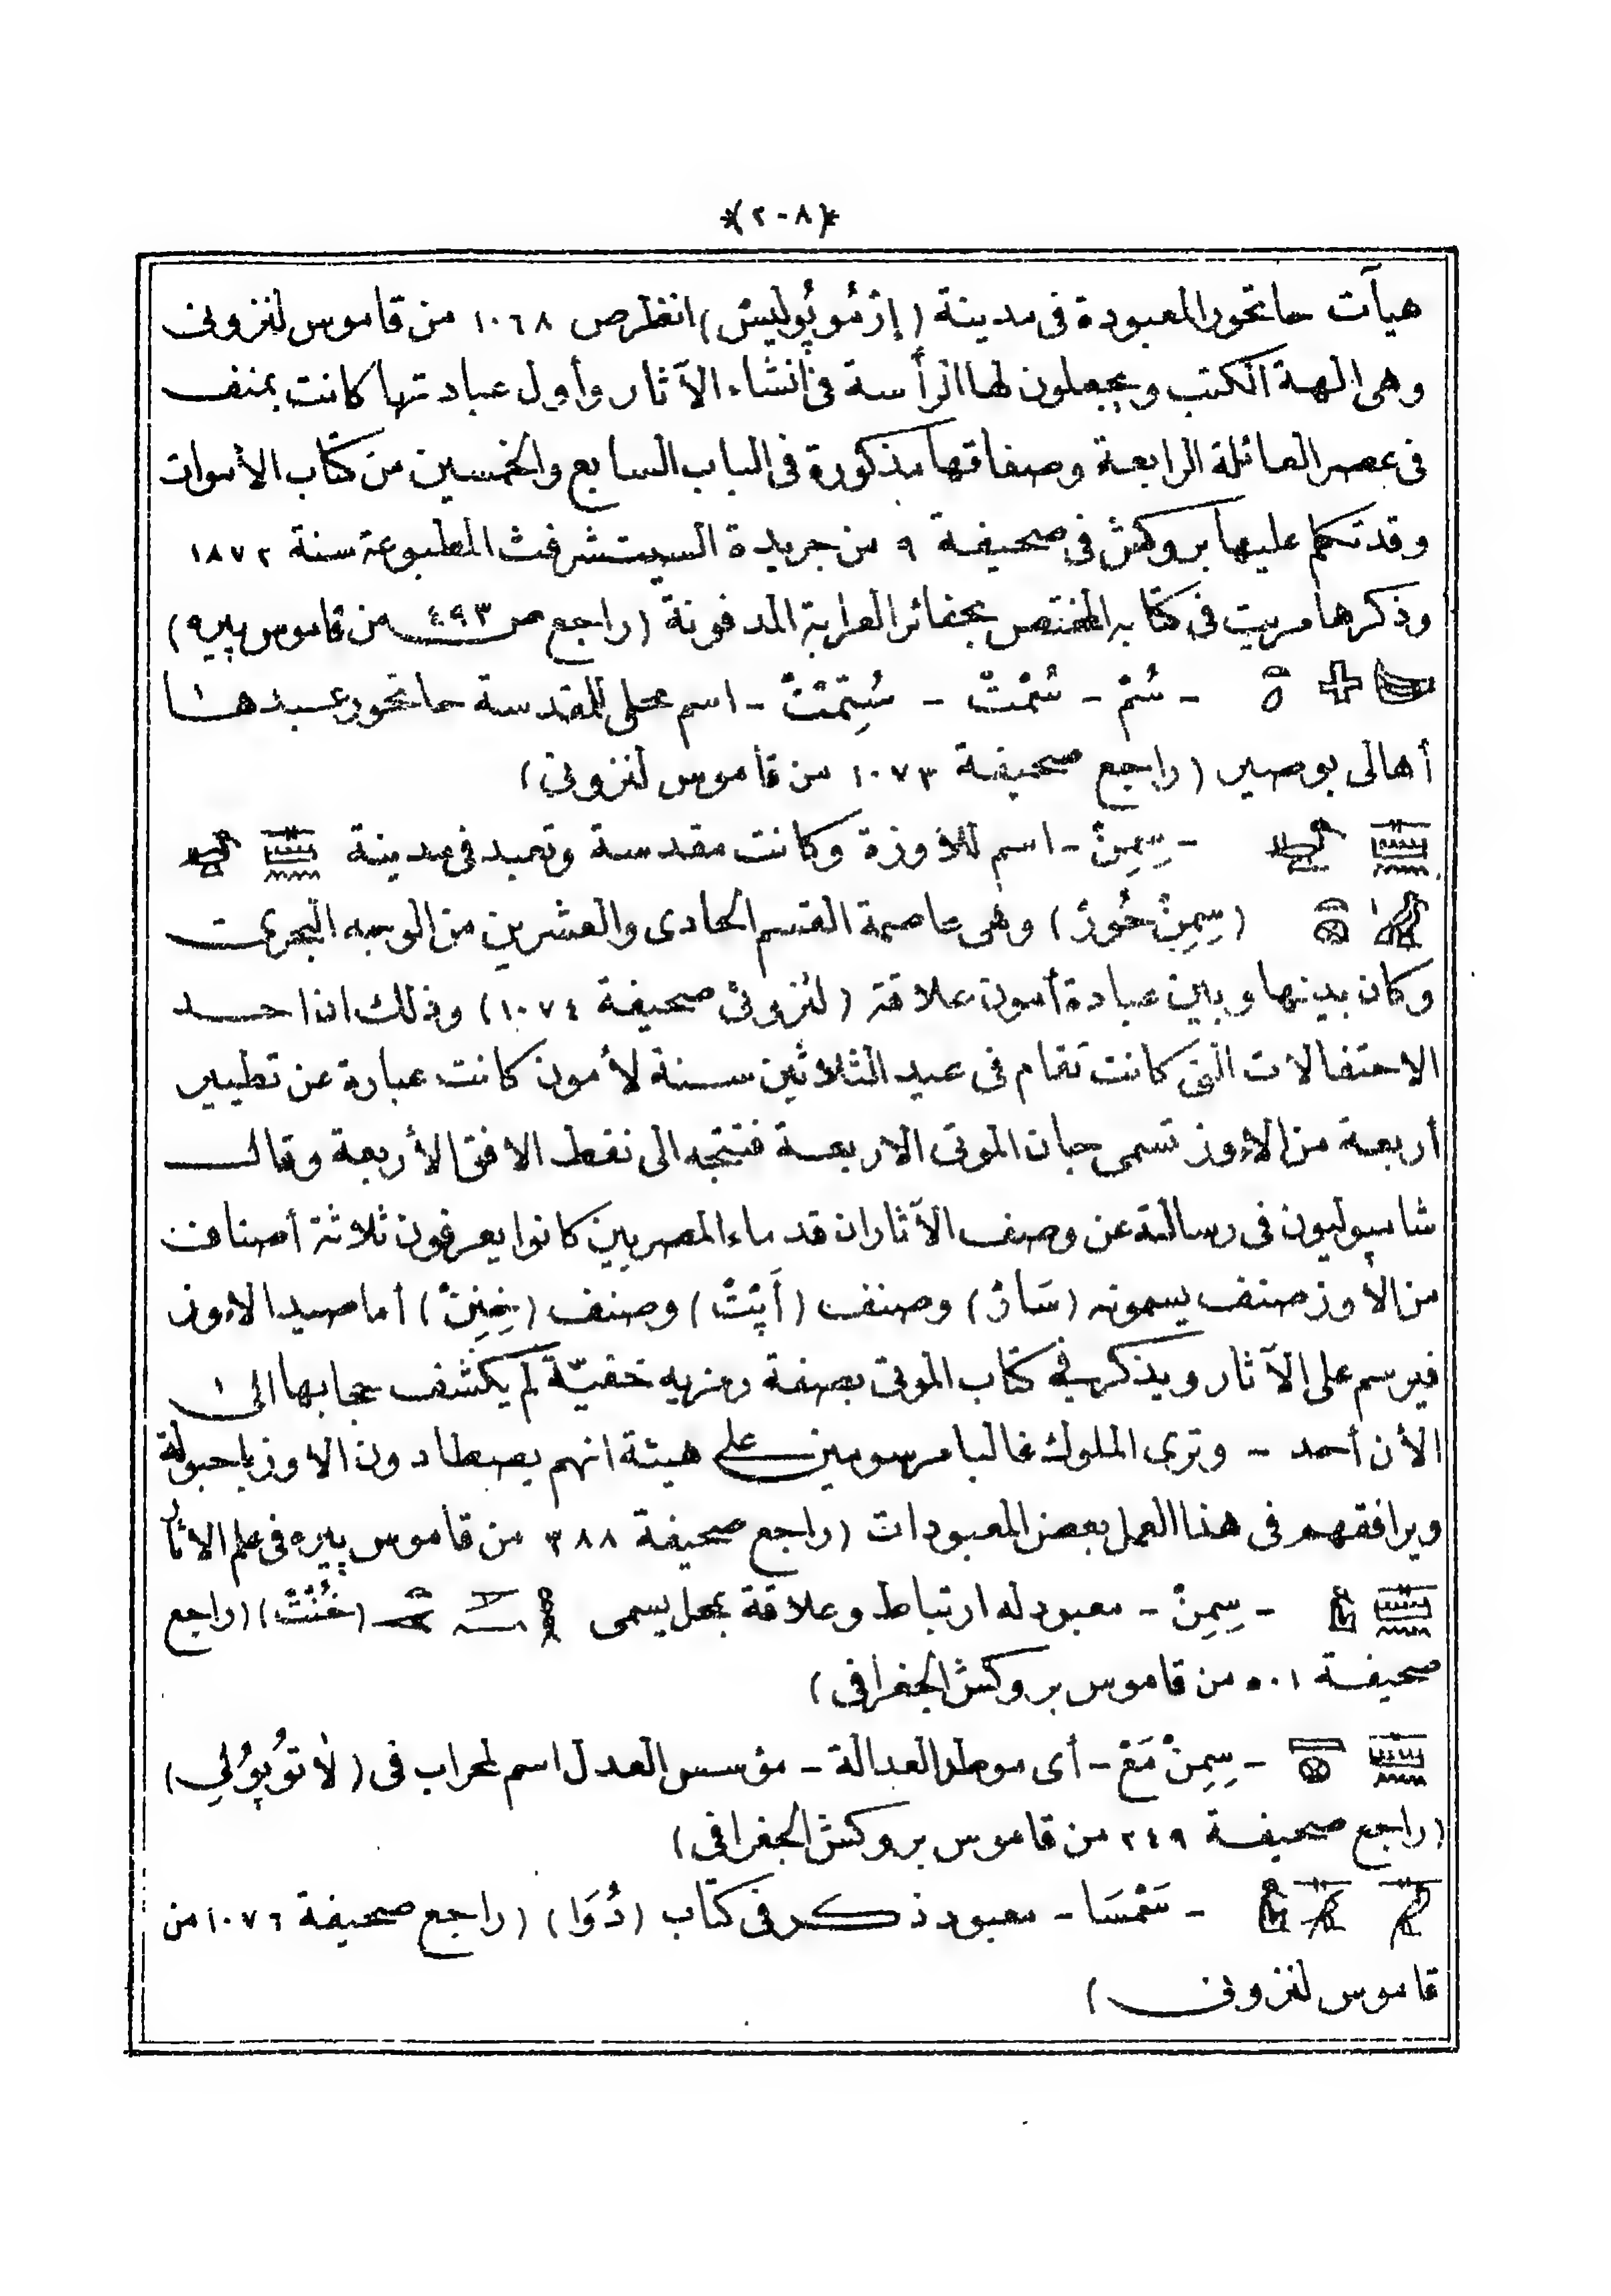 *(٢٠٨)*
هيآت حاتحور المعبودة فى مدينة (إِرْمُوبُولِيسْ) انظر ص ١٠٦٨ من قاموس لنزونى
وهى الهة الكتب ويجعلون لها الرأسة فى أنشاء الآثار وأول عبادتها كانت بمنف
فى عصر العائلة الرابعة وصفاتها مذكورة فى الباب السابع والخمسين من كتاب الأموات
وقد تكلم عليها بروكش فى صحيفة ٩ من جريدة السيتشرفت المطبوعة سنة ١٨٧٢
وذكرها مريت فى كتابه المختص بحفائر العرابة المدفونة (راجع ص ٤٩٣ من قاموس پيره)
- سُمْ - سُمْتْ - سُتِمْتْ - اسم محلى للمقدسة حاتحور عبدها
أهالى بوصير (راجع صحيفة ١٠٧٣ من قاموس لنزونى)
- سِمِنْ - اسم للاوزة وكانت مقدسة وتعبد فى مدينة
(سِمِنْ حُورْ) وهى عاصمة القسم الحادى والعشرين من الوجه البحرى
وكان بينها وبين عبادة أمون علاقة (لنزونى صحيفة ١٠٧٤) وذلك ان احد
الاحتفالات التى كانت تقام فى عيد الثلاثين سنة لأمون كانت عبارة عن تطيير
أربعة من الاوز تسمى جبان الموتى الاربعة فتتجه الى نقط الافق الأربعة وقال
شامپوليون فى رسالته عن وصف الآثار ان قدماء المصريين كانوا يعرفون ثلاثة أصناف
من الأوز صنف يسمونه (سَارْ) وصنف (أَپْتْ) وصنف (خِنِنْ) أما صيد الاوز
فيرسم على الآثار ويذكر فى كتاب الموتى بصفة رمزيه خفيّة لم يكشف حجابها الى
الأن أحد - وترى الملوك غالبا مرسومين على هيئة انهم يصطادون الاوز باحبولة
ويرافقهم فى هذا العمل بعض المعبودات (راجع صحيفة ٣٨٨ من قاموس پيره فى علم الاثار
- سِمِنْ - معبود له ارتباط وعلاقة بمحل يسمى (خُنْتْ) (راجع
صحيفة ٥٠١ من قاموس بروكش الجغرافى)
- سِمِنْ مَعْ - أى موطد العدالة - مؤسس العدل اسم لمحراب فى (لَاتُوپُولِى)
(راجع صحيفة ٢٤٩ من قاموس بروكش الجغرافى)
- سَمْسَا - معبود ذكر فى كتاب (دُوَا) (راجع صحيفة ١٠٧٦ من
قاموس لنزونى)